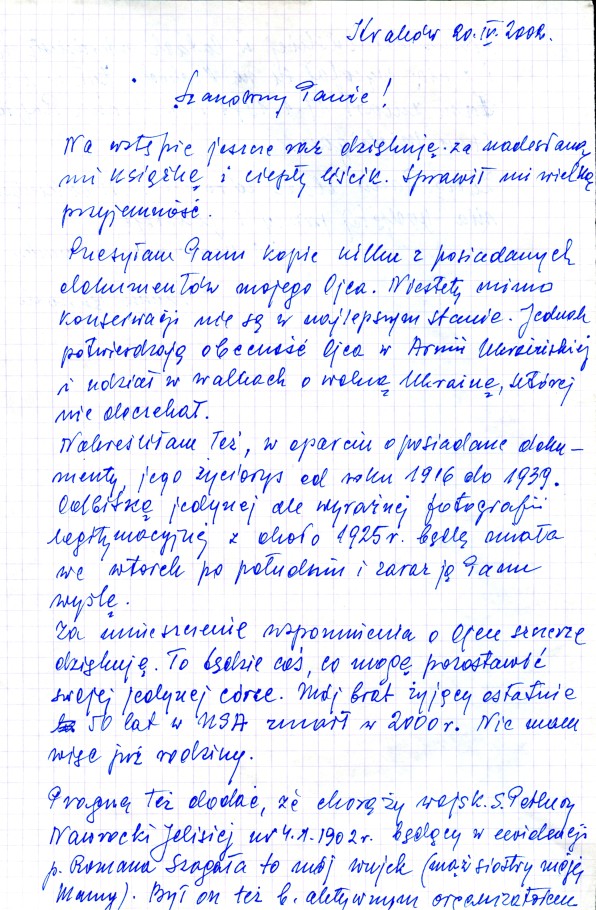 Kraków 20.IV.2002.
Szanowny Panie!
Na wstępie jeszcze raz dziękuję za nadesłaną
mi książkę i ciepły liścik. Sprawił mi wielką
przyjemność.
Przesyłam Panu kopie kilku z posiadanych
dokumentów mojego Ojca. Niestety mimo
konserwacji nie są w najlepszym stanie. Jednak
potwierdzają obecność Ojca w Armii Ukraińskiej
i udział w walkach o wolną Ukrainę, której
nie doczekał.
Nakreśliłam też, w oparciu o posiadane doku-
menty, jego życiorys od roku 1916 do 1939.
Odbitkę jedynej ale wyraźnej fotografii
legitymacyjnej z około 1925r. będę miała
we wtorek po południu i zaraz ją Panu
wyślę.
Za umieszczenie wspomnienia o Ojcu szczerze
dziękuję. To będzie coś, co mogę pozostawić
swojej jedynej córce. Mój brat żyjący ostatnie
50 lat w USA zmarł w 2000r. Nie mam
więc już rodziny.
Pragnę też dodać, że chorąży wojsk. S. Petlury
Nawrocki Jelisiej ur 4.X.1902r. będący w ewidencji
p. Romana Szagała to mój wujek (mąż siostry mojej
Mamy). Był on też b. aktywnym organizatorem